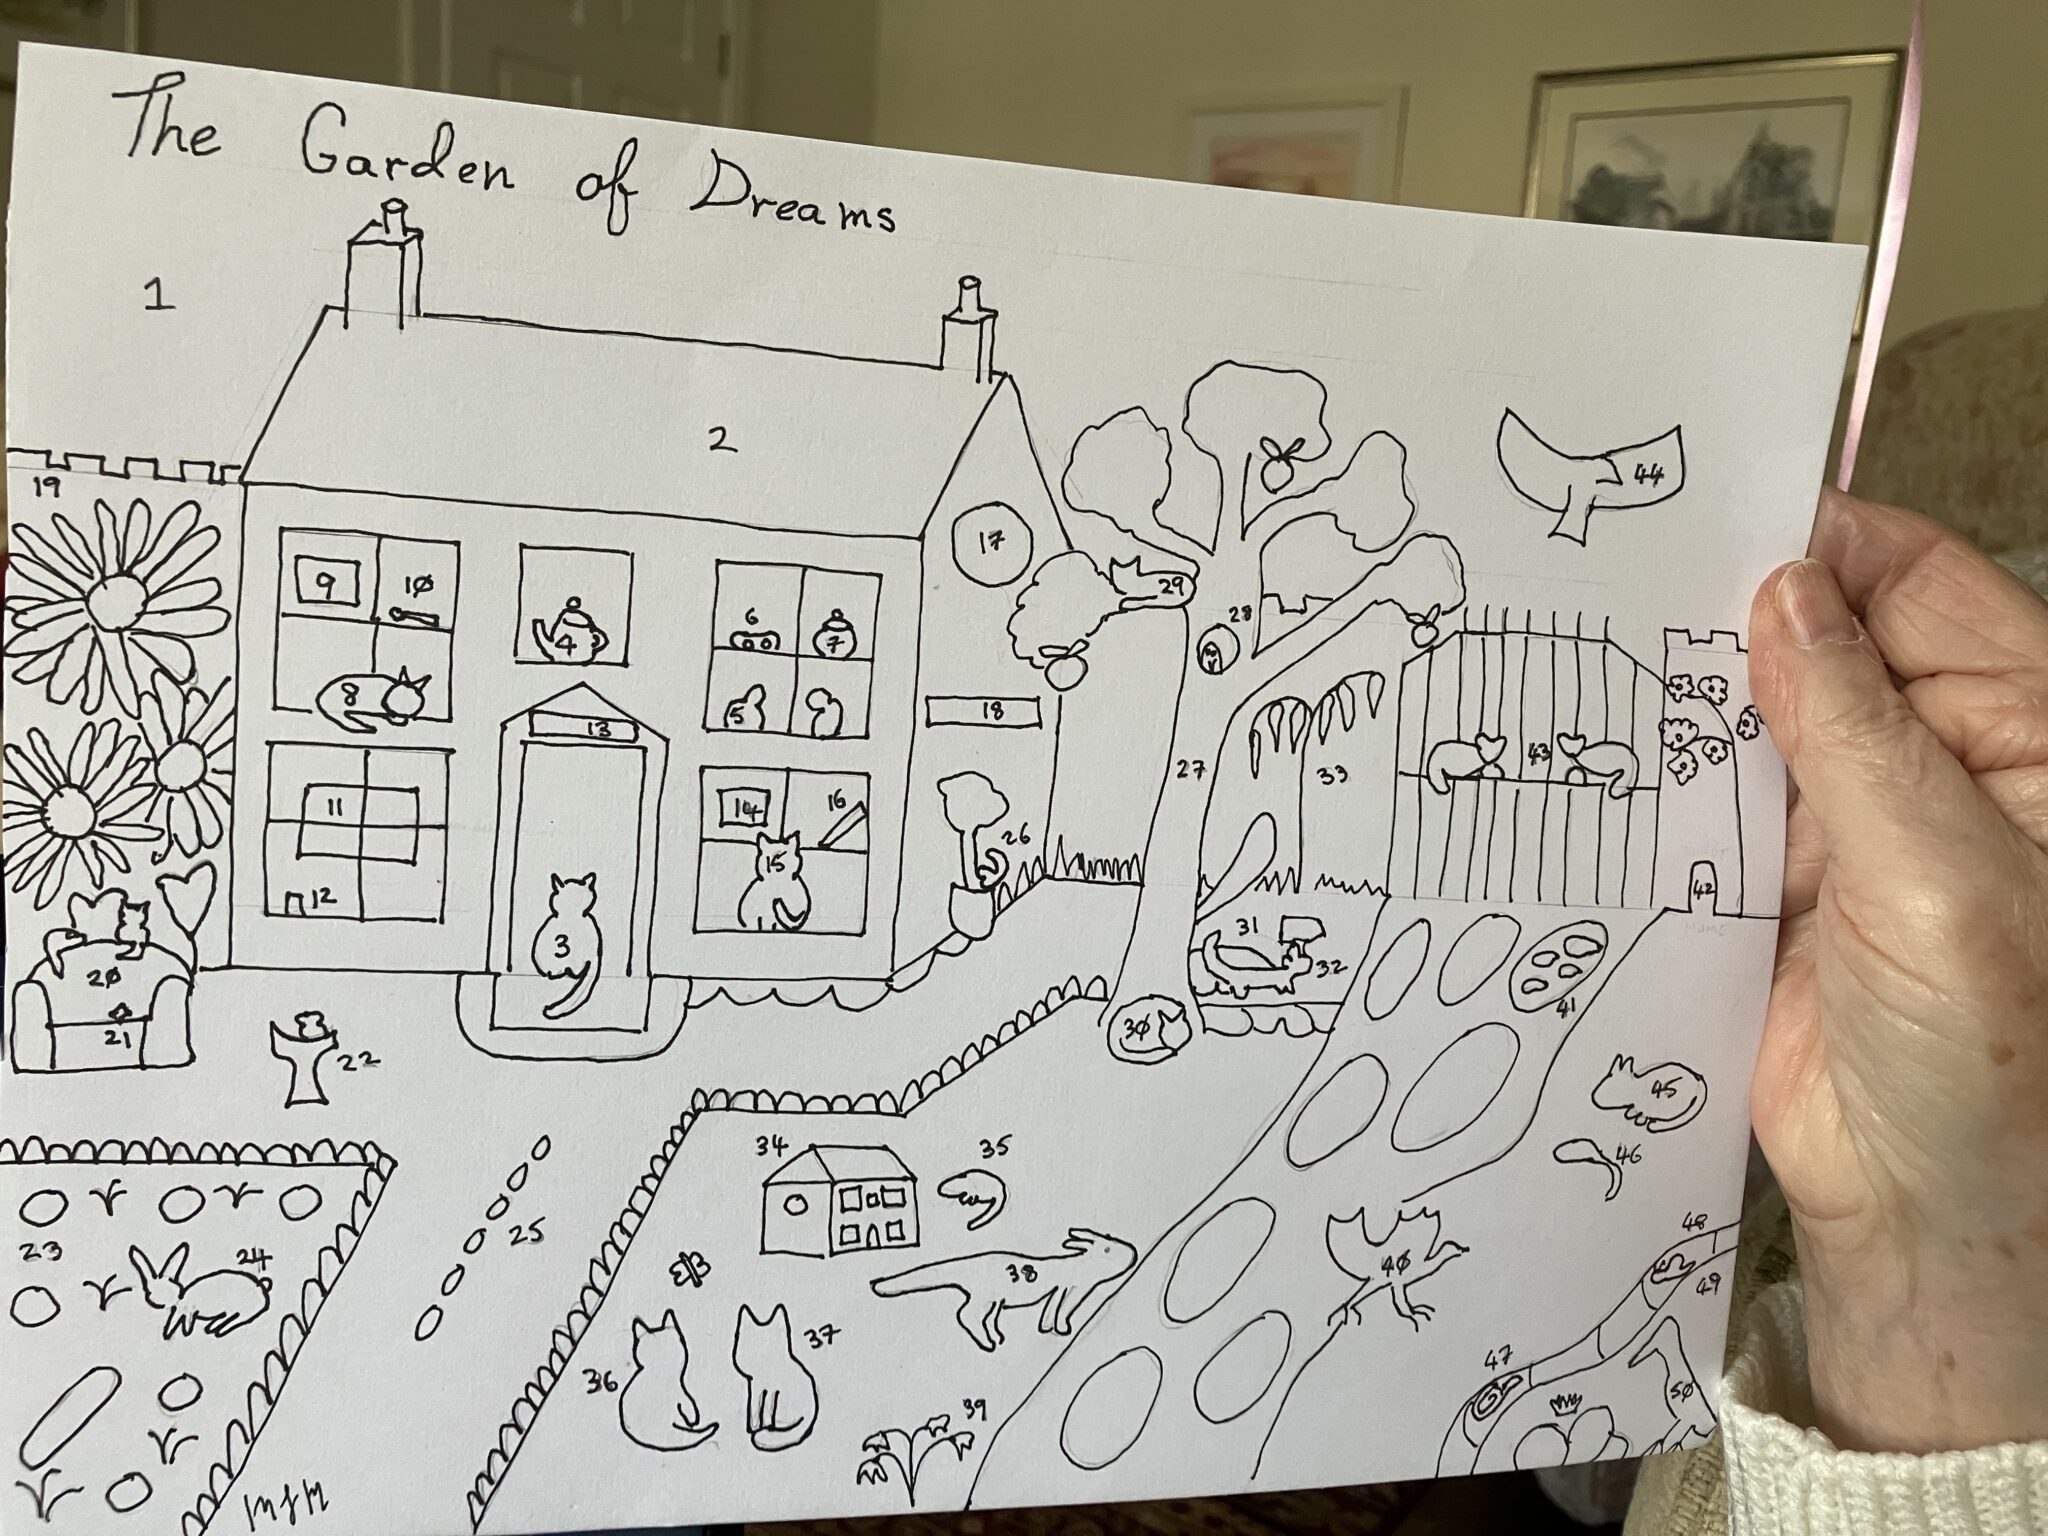 The Garden of Dreams
1
2
19
17
44
9
10
6
4
7
29
28
8
5
18
13
43
27
33
11
14
16
15
26
12
42
3
31
32
20
41
21
30
22
45
34
35
46
23
24
25
48
38
40
49
36
37
47
50
39